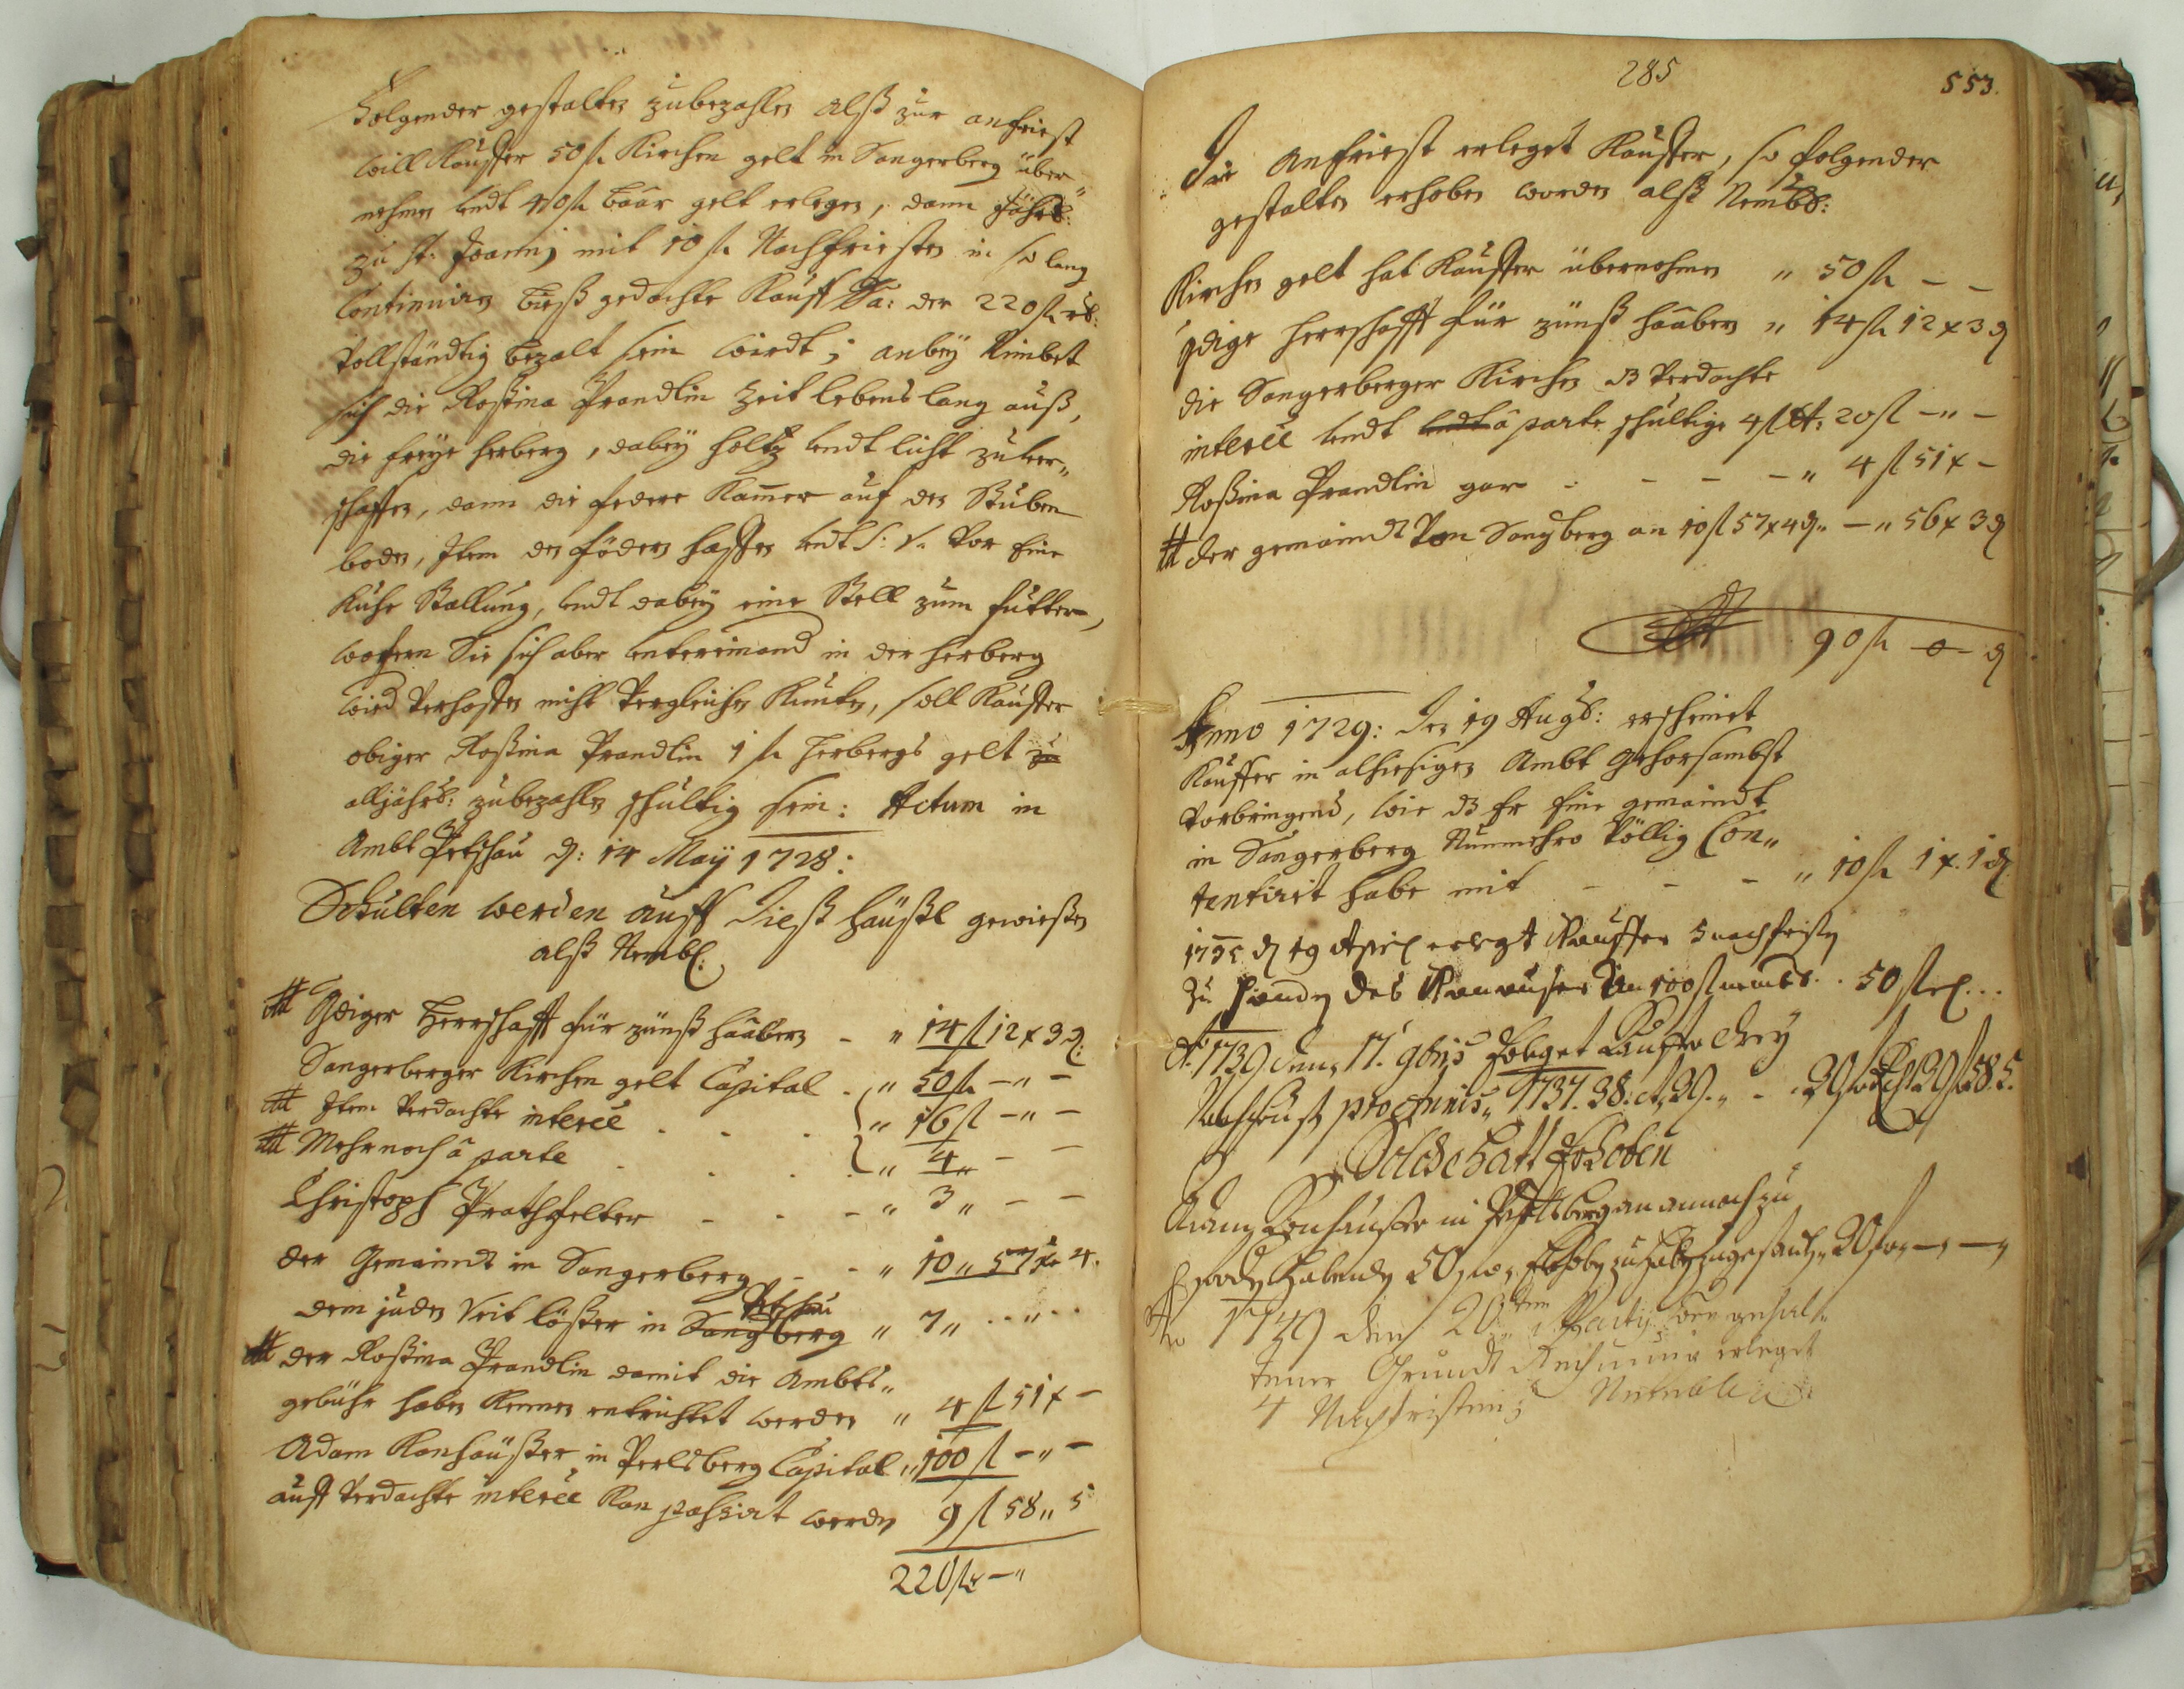 Folgender gestalten zubezahlen alß zur anfriest
will Kauffer 50 fl. Kirchen gelt in Sangerberg über„
nehmen undt 40 fl. baar gelt erlegen, dann Jährl:
zu St: Joannj mit 10 fl. Nachfriesten in so lang
Continuiren bieß gedachte Kauff Sa: der 220 fl. rh:
Vollständig bezalt sein wirdt; anbey Nimbet
sich die Roßina Prandlin Zeit lebens lang auß,
die freye herberg, dabey holtz undt licht zuver„
schaffen, dann die federe Kamer auf den Stuben
boden, Item den födern hoffen undt S: V. vor Eine
Kuhe Stallung, undt dabey eine Stell zum futter,
wofern Sie sich aber untereinand in der herberg
wied verhoffen nicht Vergleichen Kunten, soll Kauffer
obiger Roßina Prandlin 1 fl. herbergs gelt zu
alljährl: zubezahlen schultig sein: Actum in
Ambt Petschau d: 14 May 1728:
Schulten werden auff Dieß häußl gewießen
alß Nembl:
Gdiger Herrschafft für zünß haabern - „ 14 fl 12 x 3 d:
Sangerberger Kirchen gelt Capital . „ 50 fl. -„ -
Item Verdachte interée . . . „ 16 fl -„ -
Mehr noch â parte . . . „ 4„ - -
Christoph Prathfelter - - - „ 3„ - -
der Gemaindt in Sangerberg - - „ 10„ 57 x 4.
Petschau
dem juden Veit löster in Sangberg „ 7„ ..„..
der Roßina Prandlin damit die Ambts„
gebühr haben Kennen entrichtet werden „ 4 fl 51 x -
Adam Konhäußer in Perlsberg Capital „ 100 fl -„ -
auff Verdachte interée Kan passirt werden 9 fl 58„ 5
220 fl. -„
285
553.
Die Anfriest erleget Kauffer, so folgender
gestalten erhoben worden alß Nembl:
Kirchen gelt hat Kauffer übernohmen „ 50 fl. - -
Gdige Herrschafft für zünß haabern „ 14 fl. 12 x 3 d
die Sangerberger Kirchen Verdachte
interée undt undt â parte schultige 4 fl 20 fl -„ -
Roßina Prandlin gar - - - -„ 4 fl 51 x -
der gemaindt Von Sangberg an 10 fl 57 x 4 d„ -„ 56 x 3 d
90 fl. -0- d
Anno 1729: Den 19 Augs: erscheinet
Kauffer in alhiesigen Ambt Gehorsambst
Vorbringend, wie Er Eine gemaindt
in Sangerberg Nunmehro Völlig Con„
tentirt habe mit - - - „ 10 fl. 1 x. 1 d
d 19 April erlegt Kauffer 5 nachfristen
zu handen des 100 fl . 50 fl
Ao 1739 den 17. 9bris Kauffer drey
Nachfrist pro 1737. 38. et 39.
Solche hatt Erhoben
Adam Konhäußer in Perlsberg
50 30
Ao 1749 den 20ten Martij bey gehal„
tener Grundt Rechnung erleget
4 Nachfristen